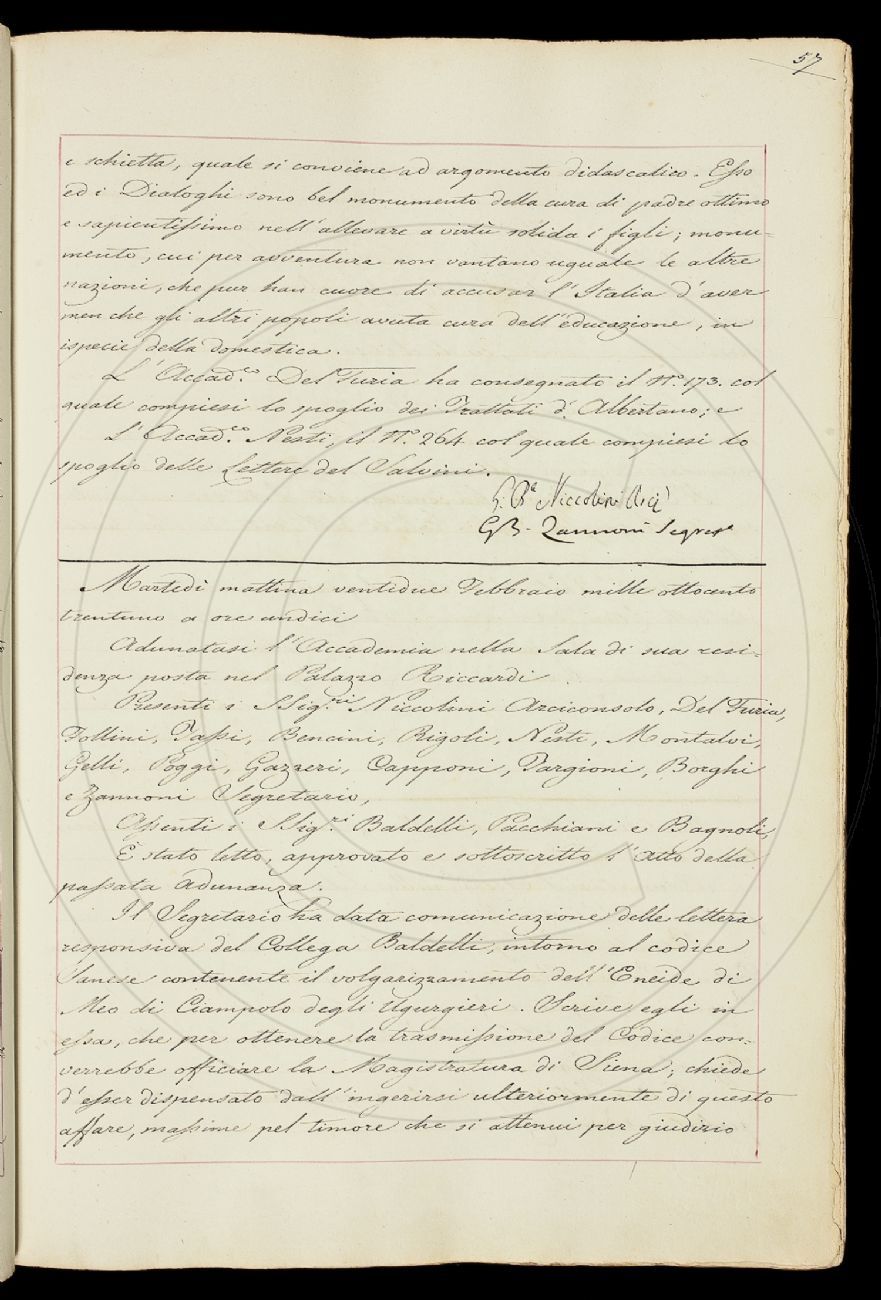 57
e schietta, quale si conviene ad argomento didascalico. Esso
ed i Dialoghi sono bel monumento della cura di padre ottimo
e sapientissimo nell'allevare a virtù solida i figli; monu-
mento, cui per avventura non vantano uguale le altre
nazioni, che pur han cuore di accusar l'Italia d'aver
men che gli altri popoli avuta cura dell'educazione, in
ispecie della domestica.
L'Accad.co Del Furia ha consegnato il N.o 173. col
quale compiesi lo spoglio dei Trattati d'Albertano; e
L'Accad.co Nesti, il N.o 264 col quale compiesi lo
spoglio delle Lettere del Salvini.
G. Ba Niccolini Arci
GB. Zannoni Segreto
Martedì mattina ventidue Febbraio mille ottocento
trentuno a ore undici
Adunatasi l'Accademia nella Sala di sua resi-
denza posta nel Palazzo Riccardi
Presenti i SSig.ri Niccolini Arciconsolo, Del Furia,
Follini, Tassi, Bencini, Rigoli, Nesti, Montalvi,
Gelli, Poggi, Gazzeri, Capponi, Targioni, Borghi
e Zannoni Segretario,
Assenti i SSig.ri Baldelli, Pacchiani e Bagnoli,
È stato letto, approvato e sottoscritto l'Atto della
passata Adunanza.
Il Segretario ha data comunicazione delle lettera
responsiva del Collega Baldelli, intorno al codice
Sanese contenente il volgarizzamento dell'Eneide di
Meo di Ciampolo degli Ugurgieri. Scrive egli in
essa, che per ottenere la trasmissione del Codice con-
verrebbe officiare la Magistratura di Siena; chiede
d'esser dispensato dall'ingerirsi ulteriormente di questo
affare, massime pel timore che si attenui per giudizio